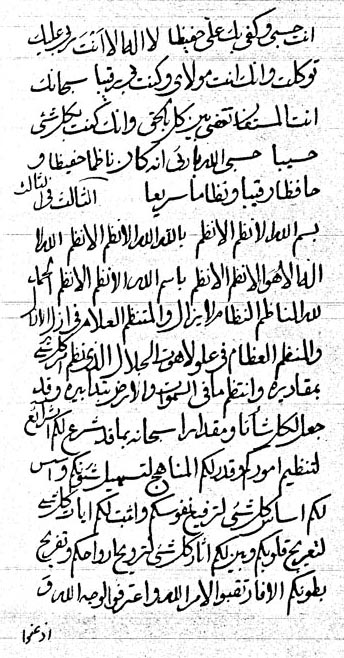 انت حسبي وكفى بك علي حفيظا لا اله الا انت ربي عليك
توكلت وانك انت مولاي وكنت لي رقيبا سبحانك
انت المستعان تقضي بين كل بالحق وانك كنت بكل شيء
حسيبا حسبي الله ربي انه كان ناظما حفيظا و
حافظا رقيبا ونظاما سريعا الثالث في الثالث
بسم الله الانظم الانظم بالله الله الانظم الانظم الله لا
اله الا هو الانظم الانظم باسم الله الانظم الانظم الحمد
لله الناظم النظام لم يزال والمنتظم العلام في ازل الازال
والمنظم العظام في علو لاهوت الجلال الذي نظم كل شيء
بمقاديره وانتظم ما في السموات والارض بتدابيره وقد
جعل لكل شأنا ومقدارا سبحانه بما قد شرع لكم الشرائع
لتنظيم اموركم وقدر لكم المناهج لتسهيل شئونكم واسس
لكم اساس كل شيء لترفيع نفوسكم واثبت لكم ايات كل شيء
لتفريح قلوبكم وبين لكم اثار كل شيء لترويح ارواحكم وتفريح
بطونكم الا فارتقبوا لامر الله واعترفوا لوجه الله و
اذعنوا